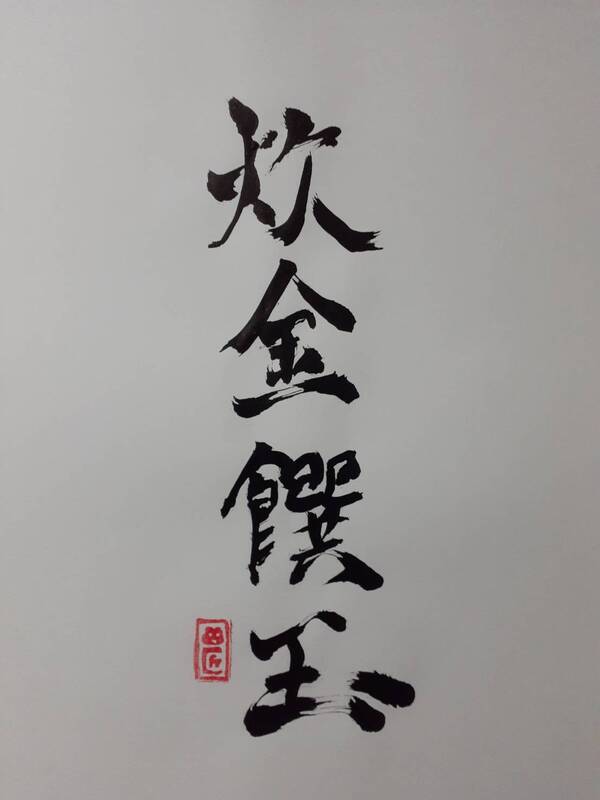 炊金饌玉